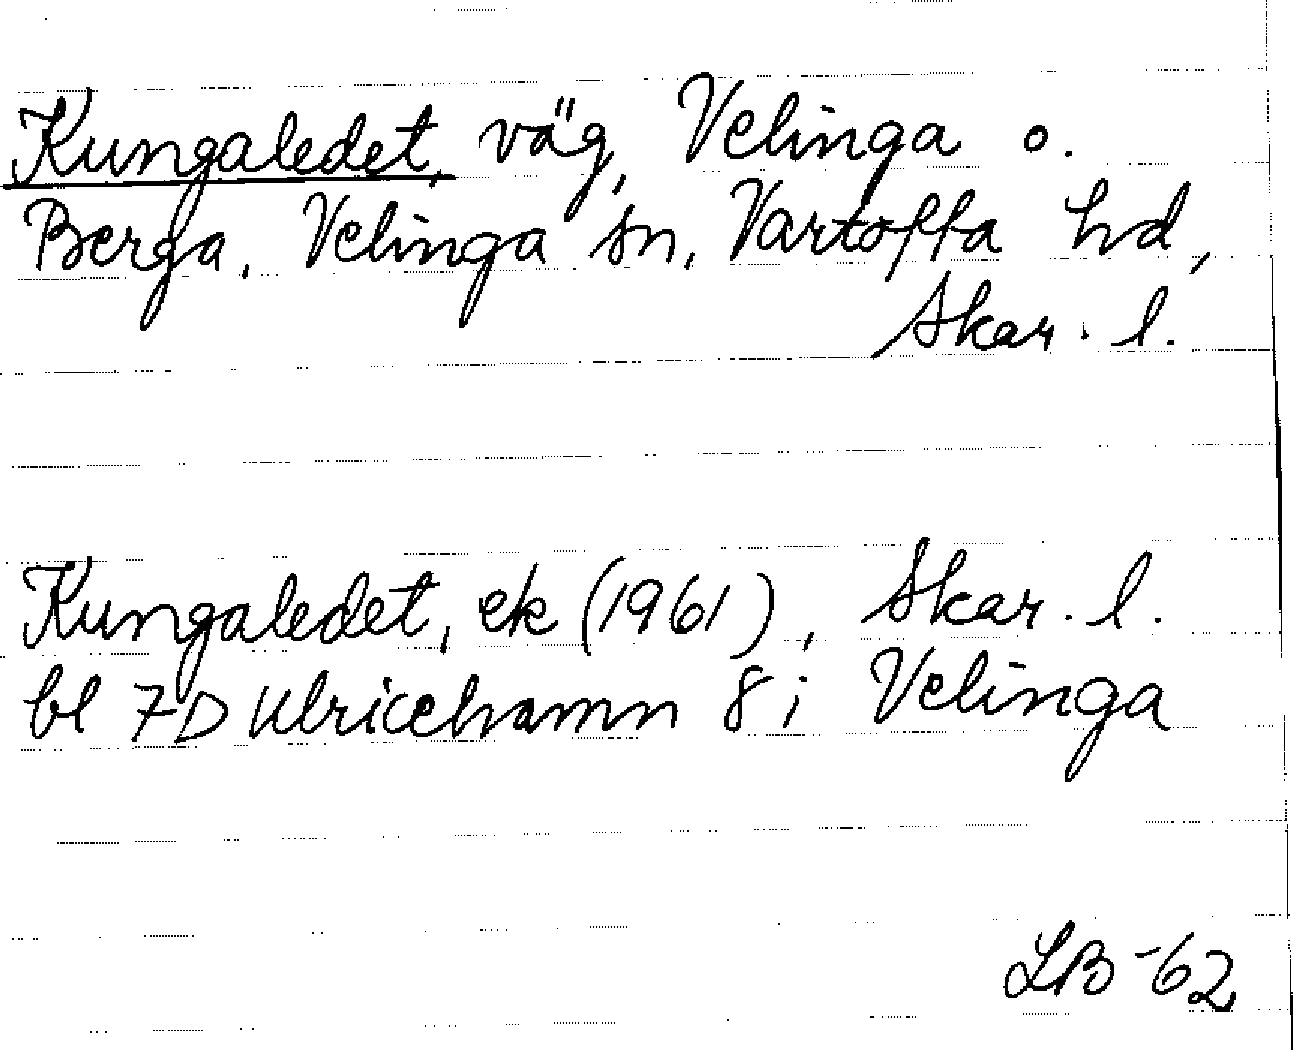 Kungaledet, väg, Velinga o.
Berga, Velinga sn, Vartofta hd,
Skar. l.
Kungaledet, ek (1961), Skar. l.
bl 7D Ulricehamn 8 i Velinga
LB-62